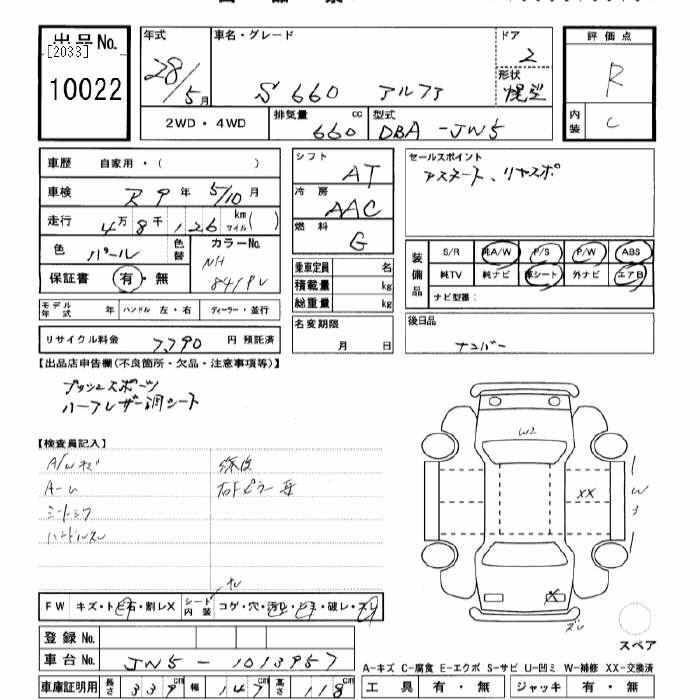 出品No.
[2033]
10022
年式 28/5月
車名・グレード S660 アルファ
ドア 2
形状 幌型
評価点 R
内装 C
2WD・4WD
排気量 660 cc
型式 DBA-JW5
車歴 自家用・( )
車検 R9年 5/10月
走行 4万8千126 km マイル( )
色 パール
色替
カラーNo. NH 841PV
保証書 有・無
モデル年式 年 ハンドル 左・右 ディーラー・並行
リサイクル料金 7,790 円 預託済
シフト AT
冷房 AAC
燃料 G
乗車定員 名
積載量 kg
総重量 kg
名変期限 月 日
セールスポイント
装備品
S/R 純A/W P/S P/W ABS
純TV 純ナビ 革シート 外ナビ エアB
ナビ型番:
後日品
ナンバー
【出品店申告欄(不良箇所・欠品・注意事項等)】
ハーフレザー調シート
【検査員記入】
A/Wキズ
ハンドルスレ
FW キズ・トビ石・割レX
シート内装 コゲ・穴・汚レ・シミ・破レ・スレ
登録No.
車台No. JW5-1013957
車庫証明用 長さ 339cm 幅 147cm 高さ 118cm
W2
XX
W3
X
ズレ
スペア
A-キズ C-腐食 E-エクボ S-サビ U-凹ミ W-補修 XX-交換済
工具 有・無 ジャッキ 有・無